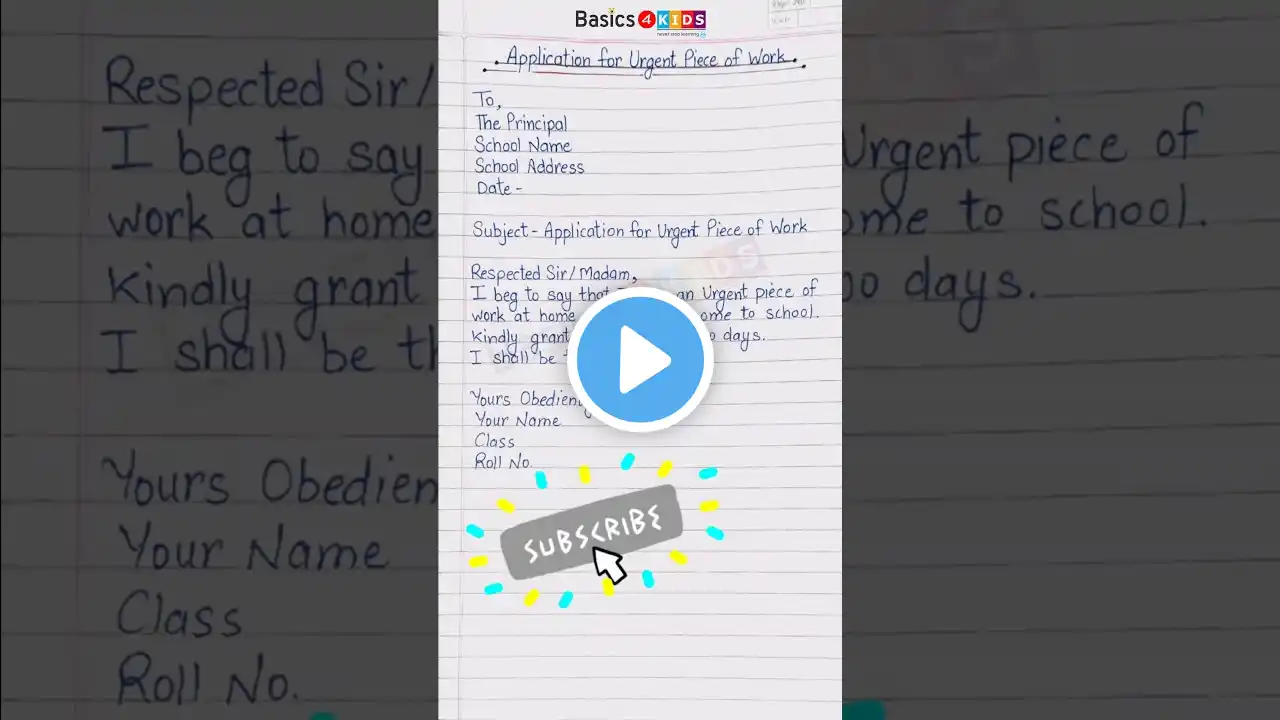 Basics 4 KIDS
never stop learning
Application for Urgent Piece of Work.
To,
The Principal
School Name
School Address
Date -
Subject - Application for Urgent Piece of Work
Respected Sir/Madam,
I beg to say that an Urgent piece of
work at home to school.
Kindly grant days.
I shall be
Yours
Your Name
Class
Roll No.
SUBSCRIBE
Respected Sir/
I beg to say
work at home
Kindly grant
I shall be
Yours
Your Name
Class
Roll No.
Urgent piece of
to school.
days.